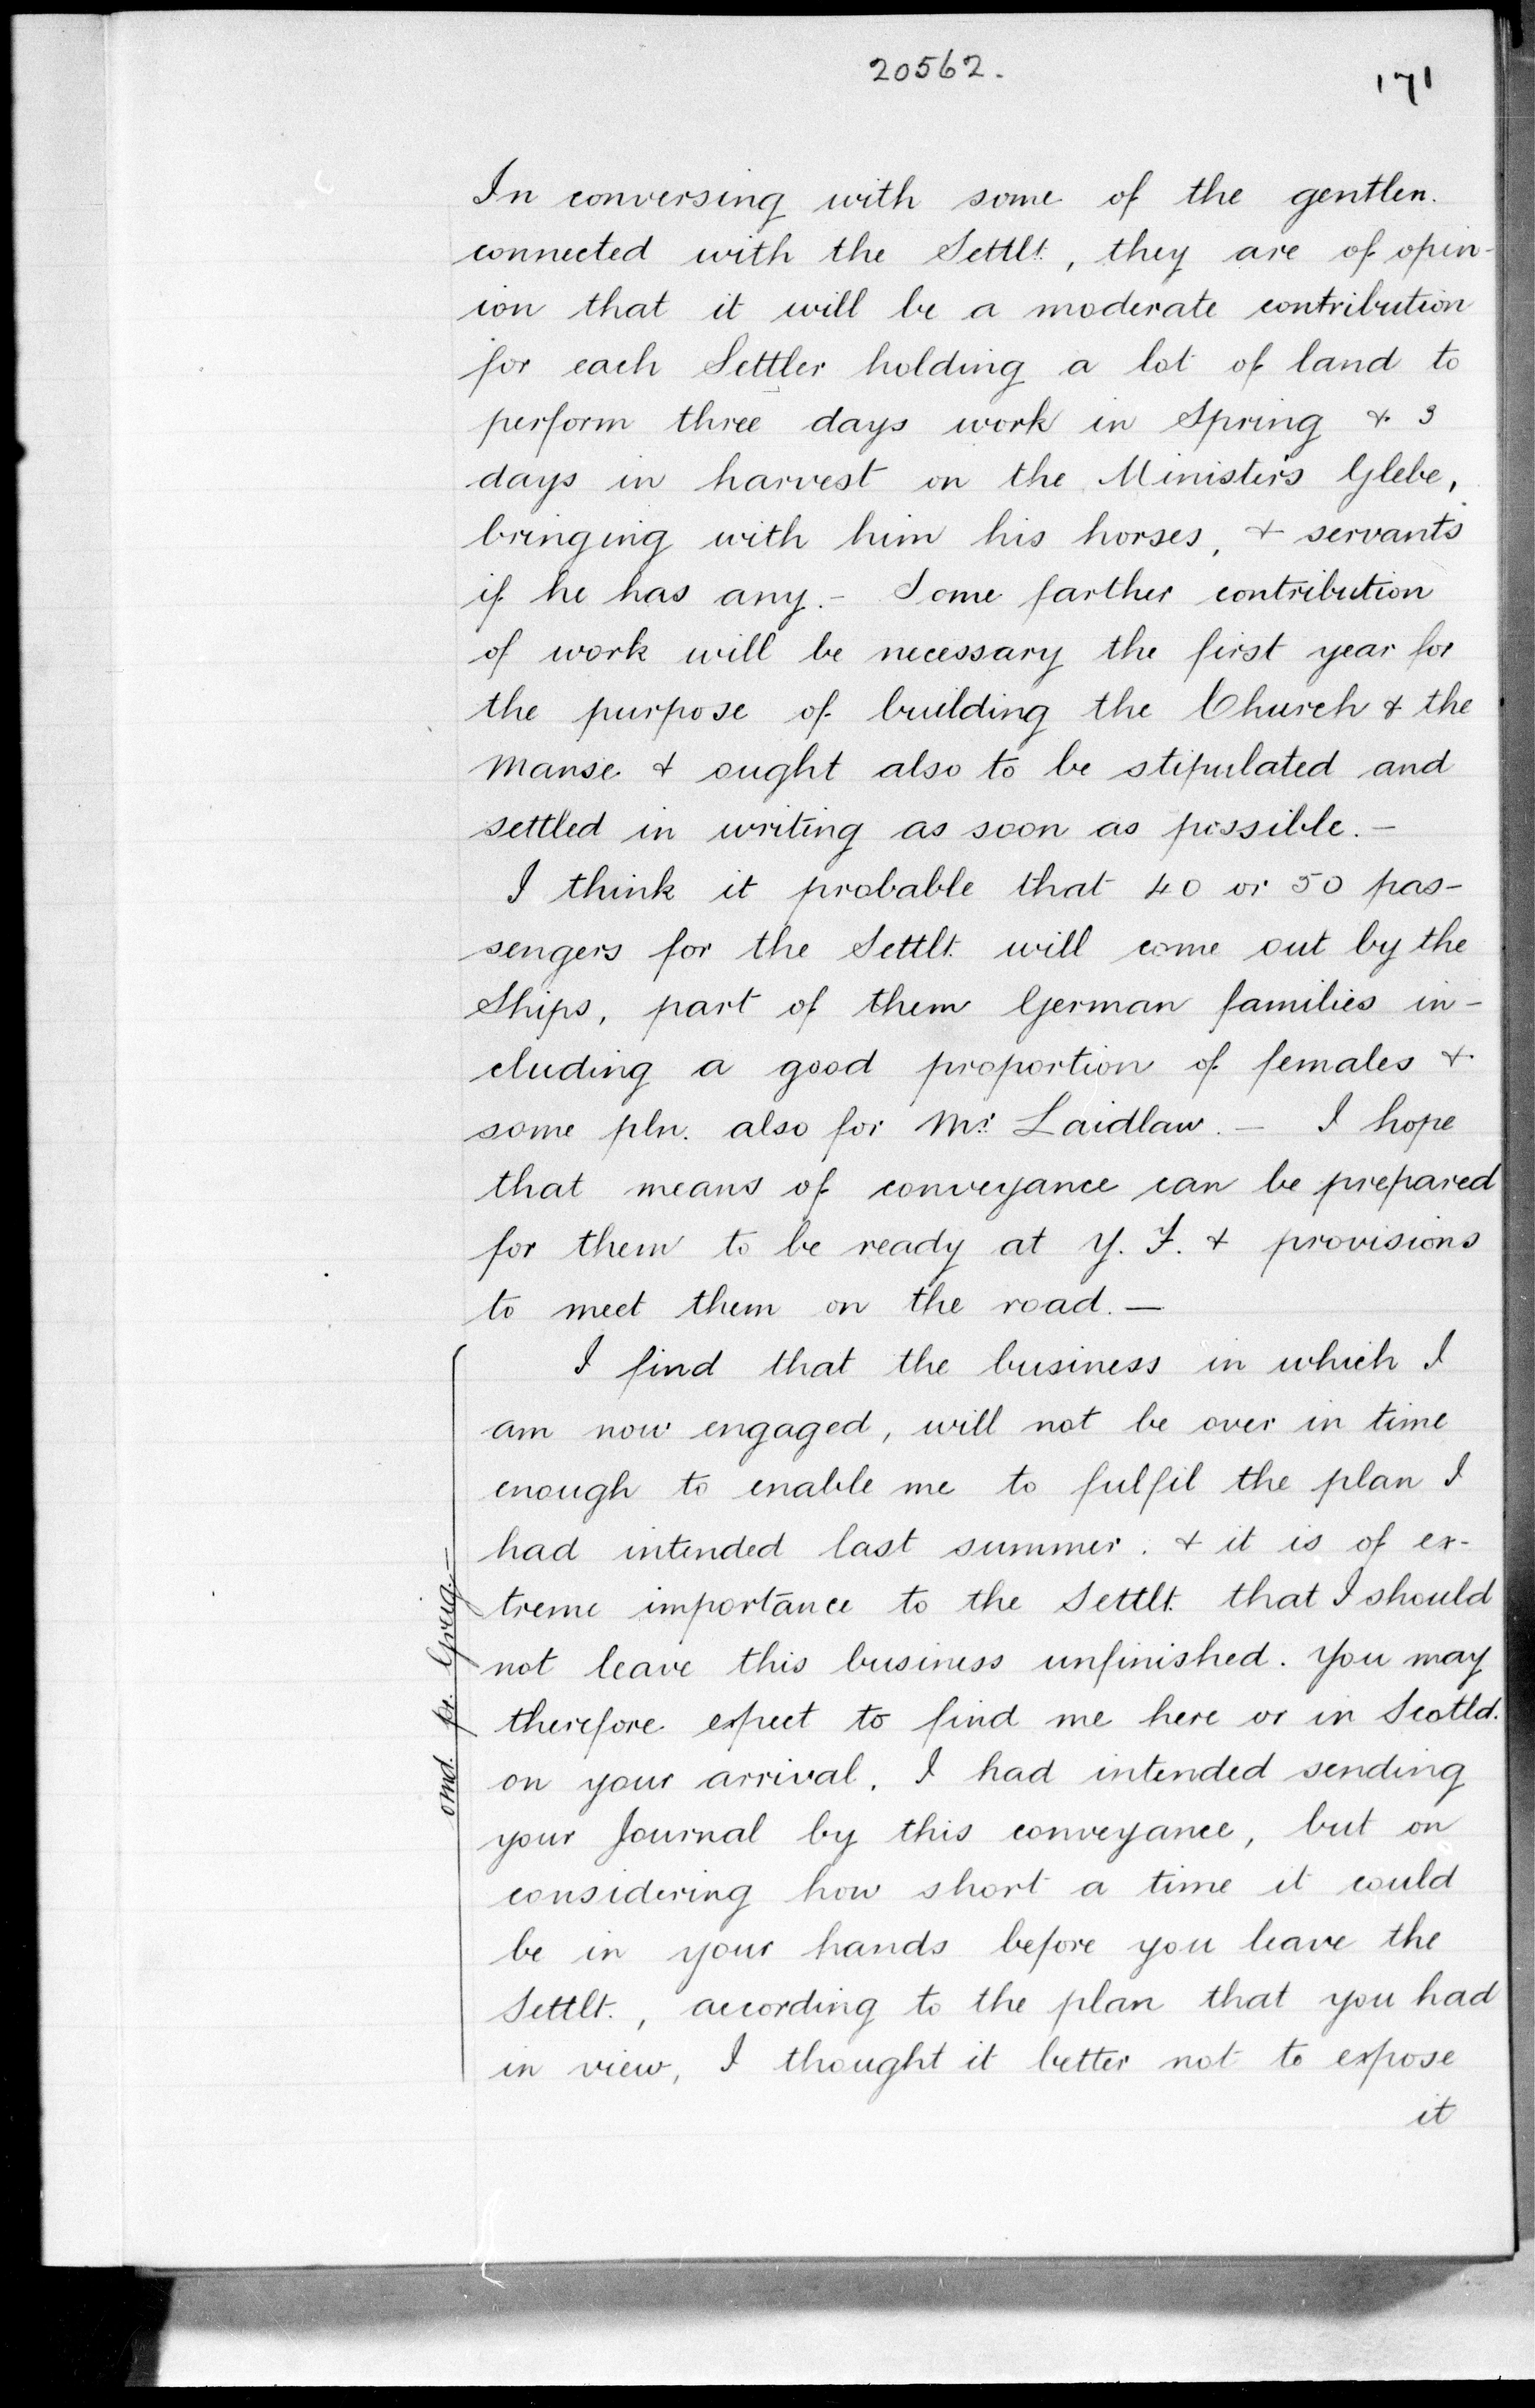 20562.
171
In conversing with some of the gentlen.
connected with the Settlt., they are of opin-
ion that it will be a moderate contribution
for each Settler holding a lot of land to
perform three days work in Spring & 3
days in harvest on the Minister's Glebe,
bringing with him his horses, & servants
if he has any. - Some farther contribution
of work will be necessary the first year for
the purpose of building the Church & the
Manse & ought also to be stipulated and
settled in writing as soon as possible. -
I think it probable that 40 or 50 pas-
sengers for the Settlt. will come out by the
Ships, part of them German families in-
cluding a good proportion of females &
some pln. also for Mr. Laidlaw. - I hope
that means of conveyance can be prepared
for them to be ready at Y. F. & provisions
to meet them on the road. —
I find that the business in which I
am now engaged, will not be over in time
enough to enable me to fulfil the plan I
had intended last summer. & it is of ex-
treme importance to the Settlt. that I should
not leave this business unfinished. You may
therefore expect to find me here or in Scotld.
on your arrival. I had intended sending
your Journal by this conveyance, but on
considering how short a time it could
be in your hands before you leave the
Settlt., according to the plan that you had
in view, I thought it better not to expose
it
omd. pr. Greig. =